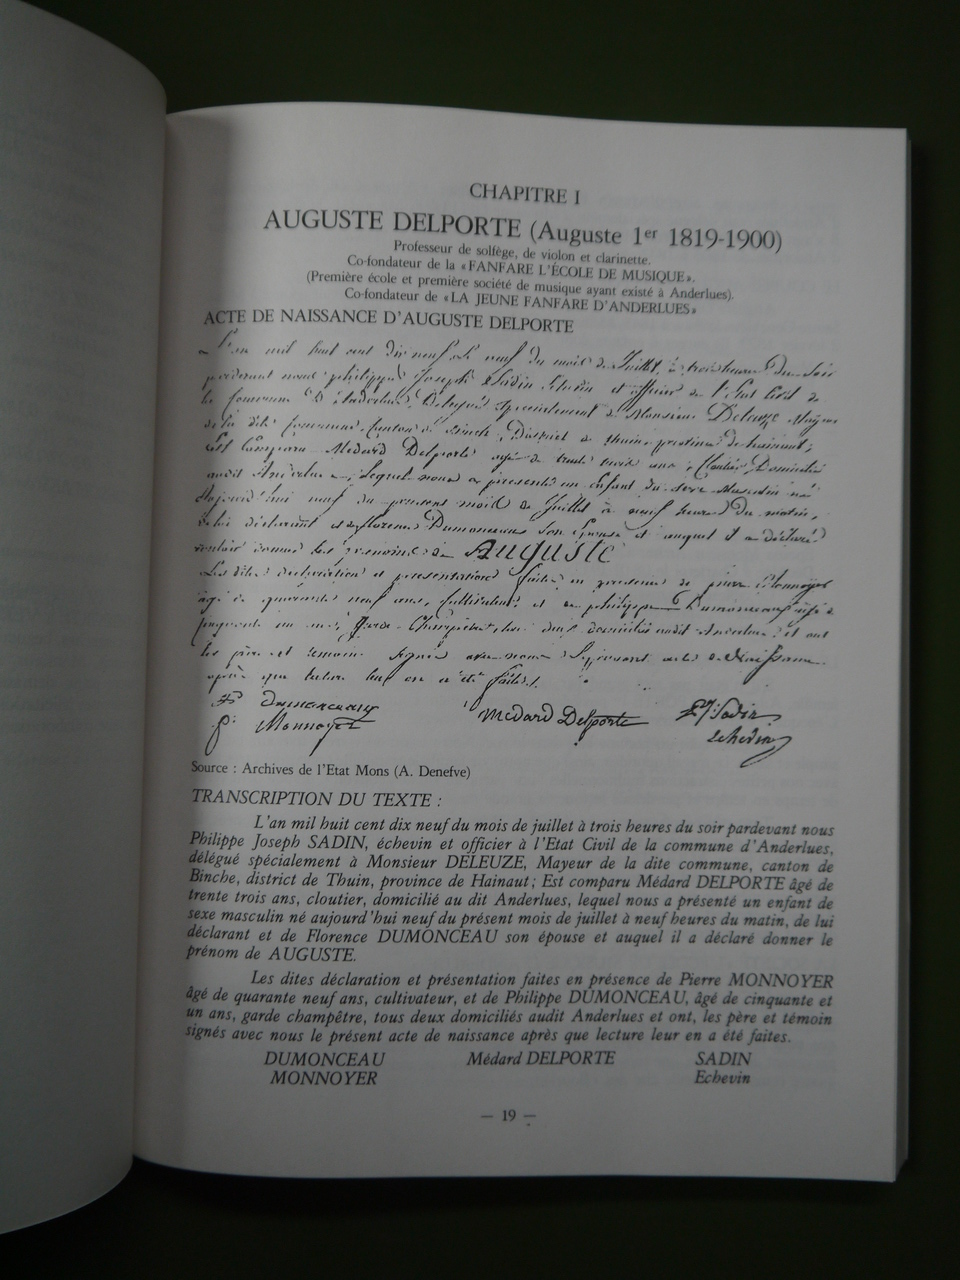 CHAPITRE I
AUGUSTE DELPORTE (Auguste 1er 1819-1900)
Professeur de solfège, de violon et clarinette.
Co-fondateur de la «FANFARE L'ÉCOLE DE MUSIQUE».
(Première école et première société de musique ayant existé à Anderlues).
Co-fondateur de «LA JEUNE FANFARE D'ANDERLUES»
ACTE DE NAISSANCE D'AUGUSTE DELPORTE
L'an mil huit cent dix neuf le neuf du mois de Juillet, à trois heures du soir
pardevant nous philippe Joseph Sadin Echevin et officier de l'Etat Civil de
la Commune d'Anderlues, Délégué Specialement de Monsieur Deleuze
de la dite Commune, Canton de Binch, District de thuin province de hainaut;
Est Comparu Médard Delporte agé de trente trois ans, Cloutier, Domicilié
audit Anderlues, Lequel nous a présenté un Enfant du sexe Masculin né
aujourd'hui neuf du présent mois de Juillet à neuf heures du matin,
de lui déclarant et de florence Dumonceau son Epouse et auquel il a déclaré
vouloir donner le prénoms de Auguste
Les dites déclaration et présentation faites en présence de pierre Monnoyer
agé de quarante neuf ans, Cultivateur, et de philippe Dumonceau agé de
cinquante un ans, Garde-Champêtre, tous deux domiciliés audit Anderlues et ont
les père et temoins signés avec nous le présent acte de Naissance
après que lecture leur en a été faites.
Dumonceau
Monnoyer
Médard Delporte
Sadin
Echevin
Source : Archives de l'Etat Mons (A. Denefve)
TRANSCRIPTION DU TEXTE :
L'an mil huit cent dix neuf du mois de juillet à trois heures du soir pardevant nous
Philippe Joseph SADIN, échevin et officier à l'Etat Civil de la commune d'Anderlues,
délégué spécialement à Monsieur DELEUZE, Mayeur de la dite commune, canton de
Binche, district de Thuin, province de Hainaut ; Est comparu Médard DELPORTE âgé de
trente trois ans, cloutier, domicilié au dit Anderlues, lequel nous a présenté un enfant de
sexe masculin né aujourd'hui neuf du présent mois de juillet à neuf heures du matin, de lui
déclarant et de Florence DUMONCEAU son épouse et auquel il a déclaré donner le
prénom de AUGUSTE.
Les dites déclaration et présentation faites en présence de Pierre MONNOYER
âgé de quarante neuf ans, cultivateur, et de Philippe DUMONCEAU, âgé de cinquante et
un ans, garde champêtre, tous deux domiciliés audit Anderlues et ont, les père et témoin
signés avec nous le présent acte de naissance après que lecture leur en a été faites.
DUMONCEAU Médard DELPORTE SADIN
MONNOYER Echevin
— 19 —